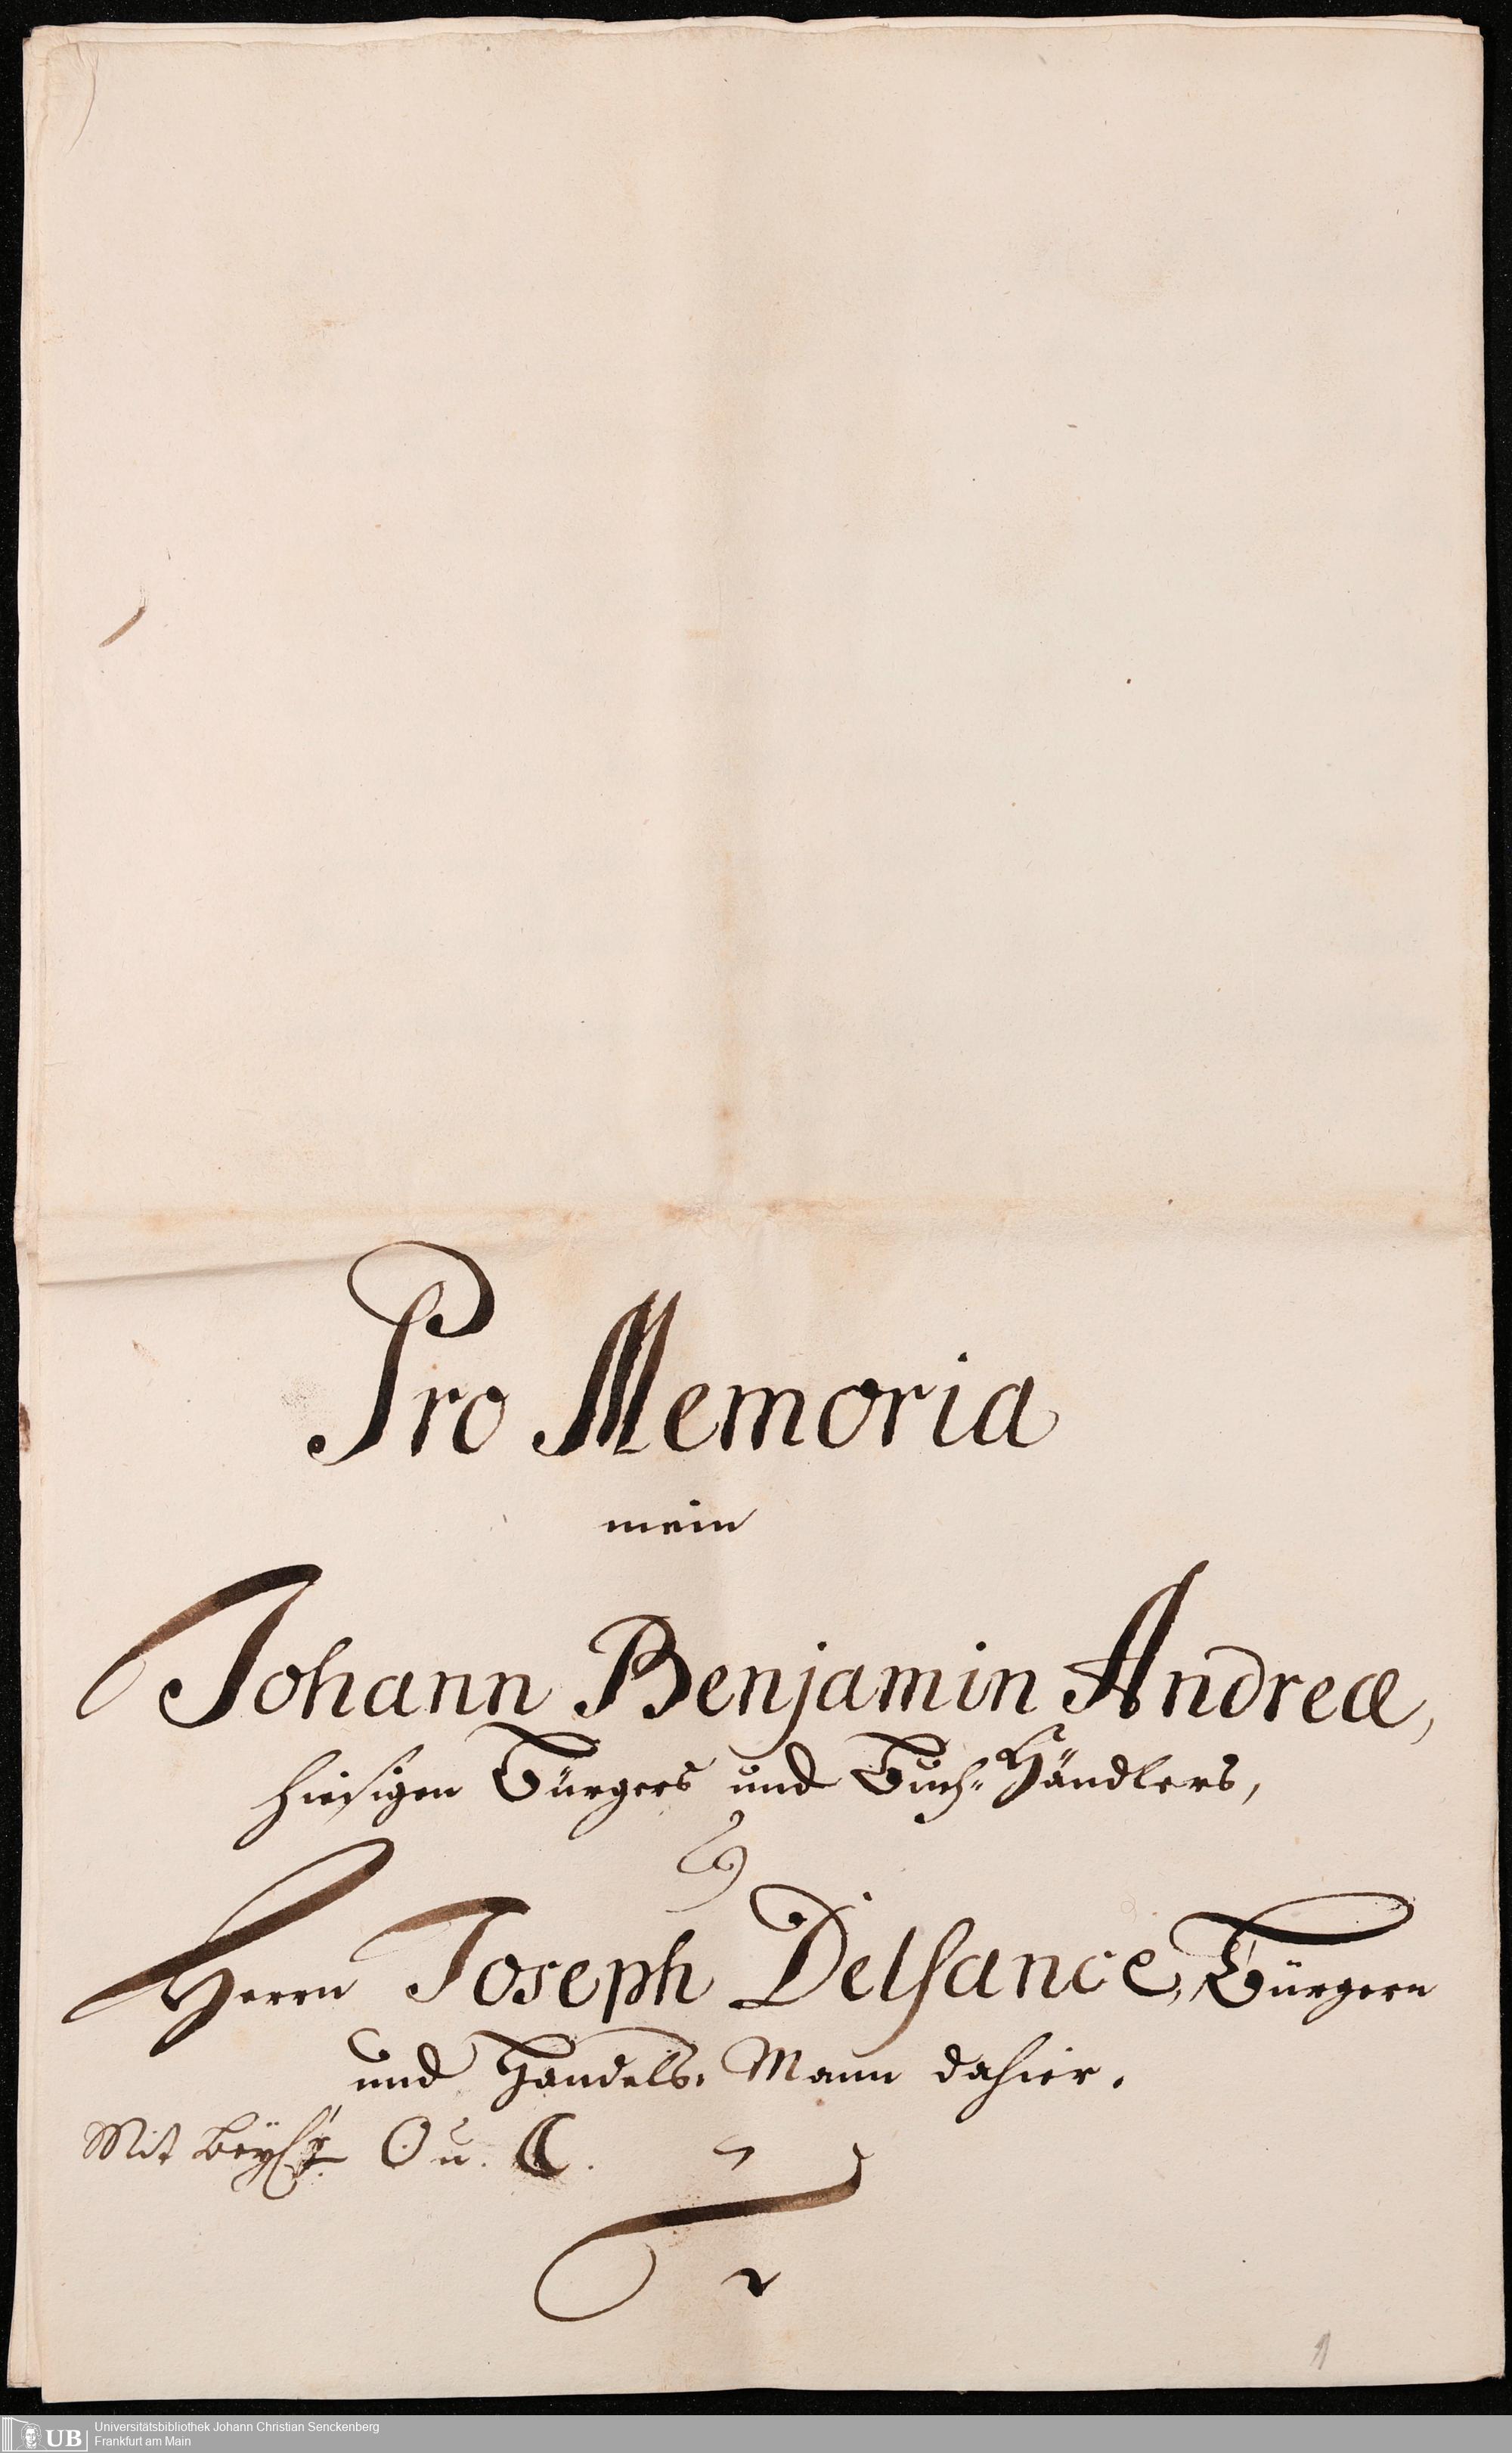 Pro Memoria
mein
Johann Benjamin Andreæ,
hiesigen Bürgers und Buch-Händlers,
Herrn Joseph Delsance, Bürgern
und Handels-Mann dahier.
Mit Beyl. O u. C.
1
UB
Universitätsbibliothek Johann Christian Senckenberg
Frankfurt am Main